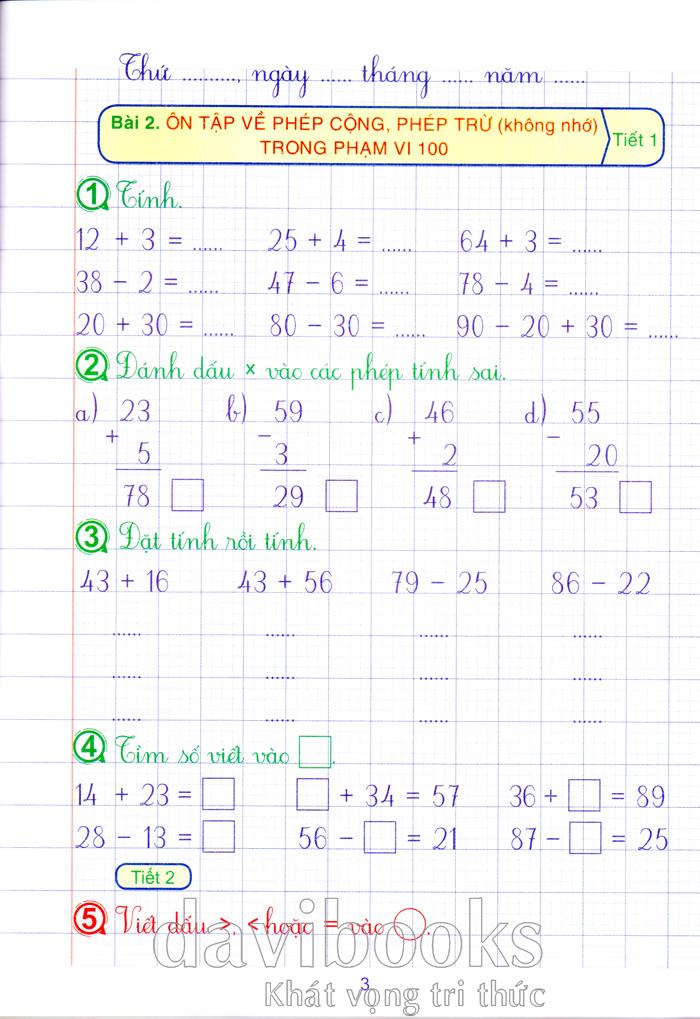 Thứ .........., ngày ...... tháng ...... năm ......
Bài 2. ÔN TẬP VỀ PHÉP CỘNG, PHÉP TRỪ (không nhớ)
TRONG PHẠM VI 100
Tiết 1
1 Tính.
12 + 3 = ...... 25 + 4 = ...... 64 + 3 = ......
38 − 2 = ...... 47 − 6 = ...... 78 − 4 = ......
20 + 30 = ...... 80 − 30 = ...... 90 − 20 + 30 = ......
2 Đánh dấu × vào các phép tính sai.
a) 23 b) 59 c) 46 d) 55
+ − + −
5 3 2 20
78 □ 29 □ 48 □ 53 □
3 Đặt tính rồi tính.
43 + 16 43 + 56 79 − 25 86 − 22
...... ...... ...... ......
...... ...... ...... ......
...... ...... ...... ......
4 Tìm số viết vào □.
14 + 23 = □ □ + 34 = 57 36 + □ = 89
28 − 13 = □ 56 − □ = 21 87 − □ = 25
Tiết 2
5 Viết dấu >, < hoặc = vào ○.
davibooks
3
Khát vọng tri thức